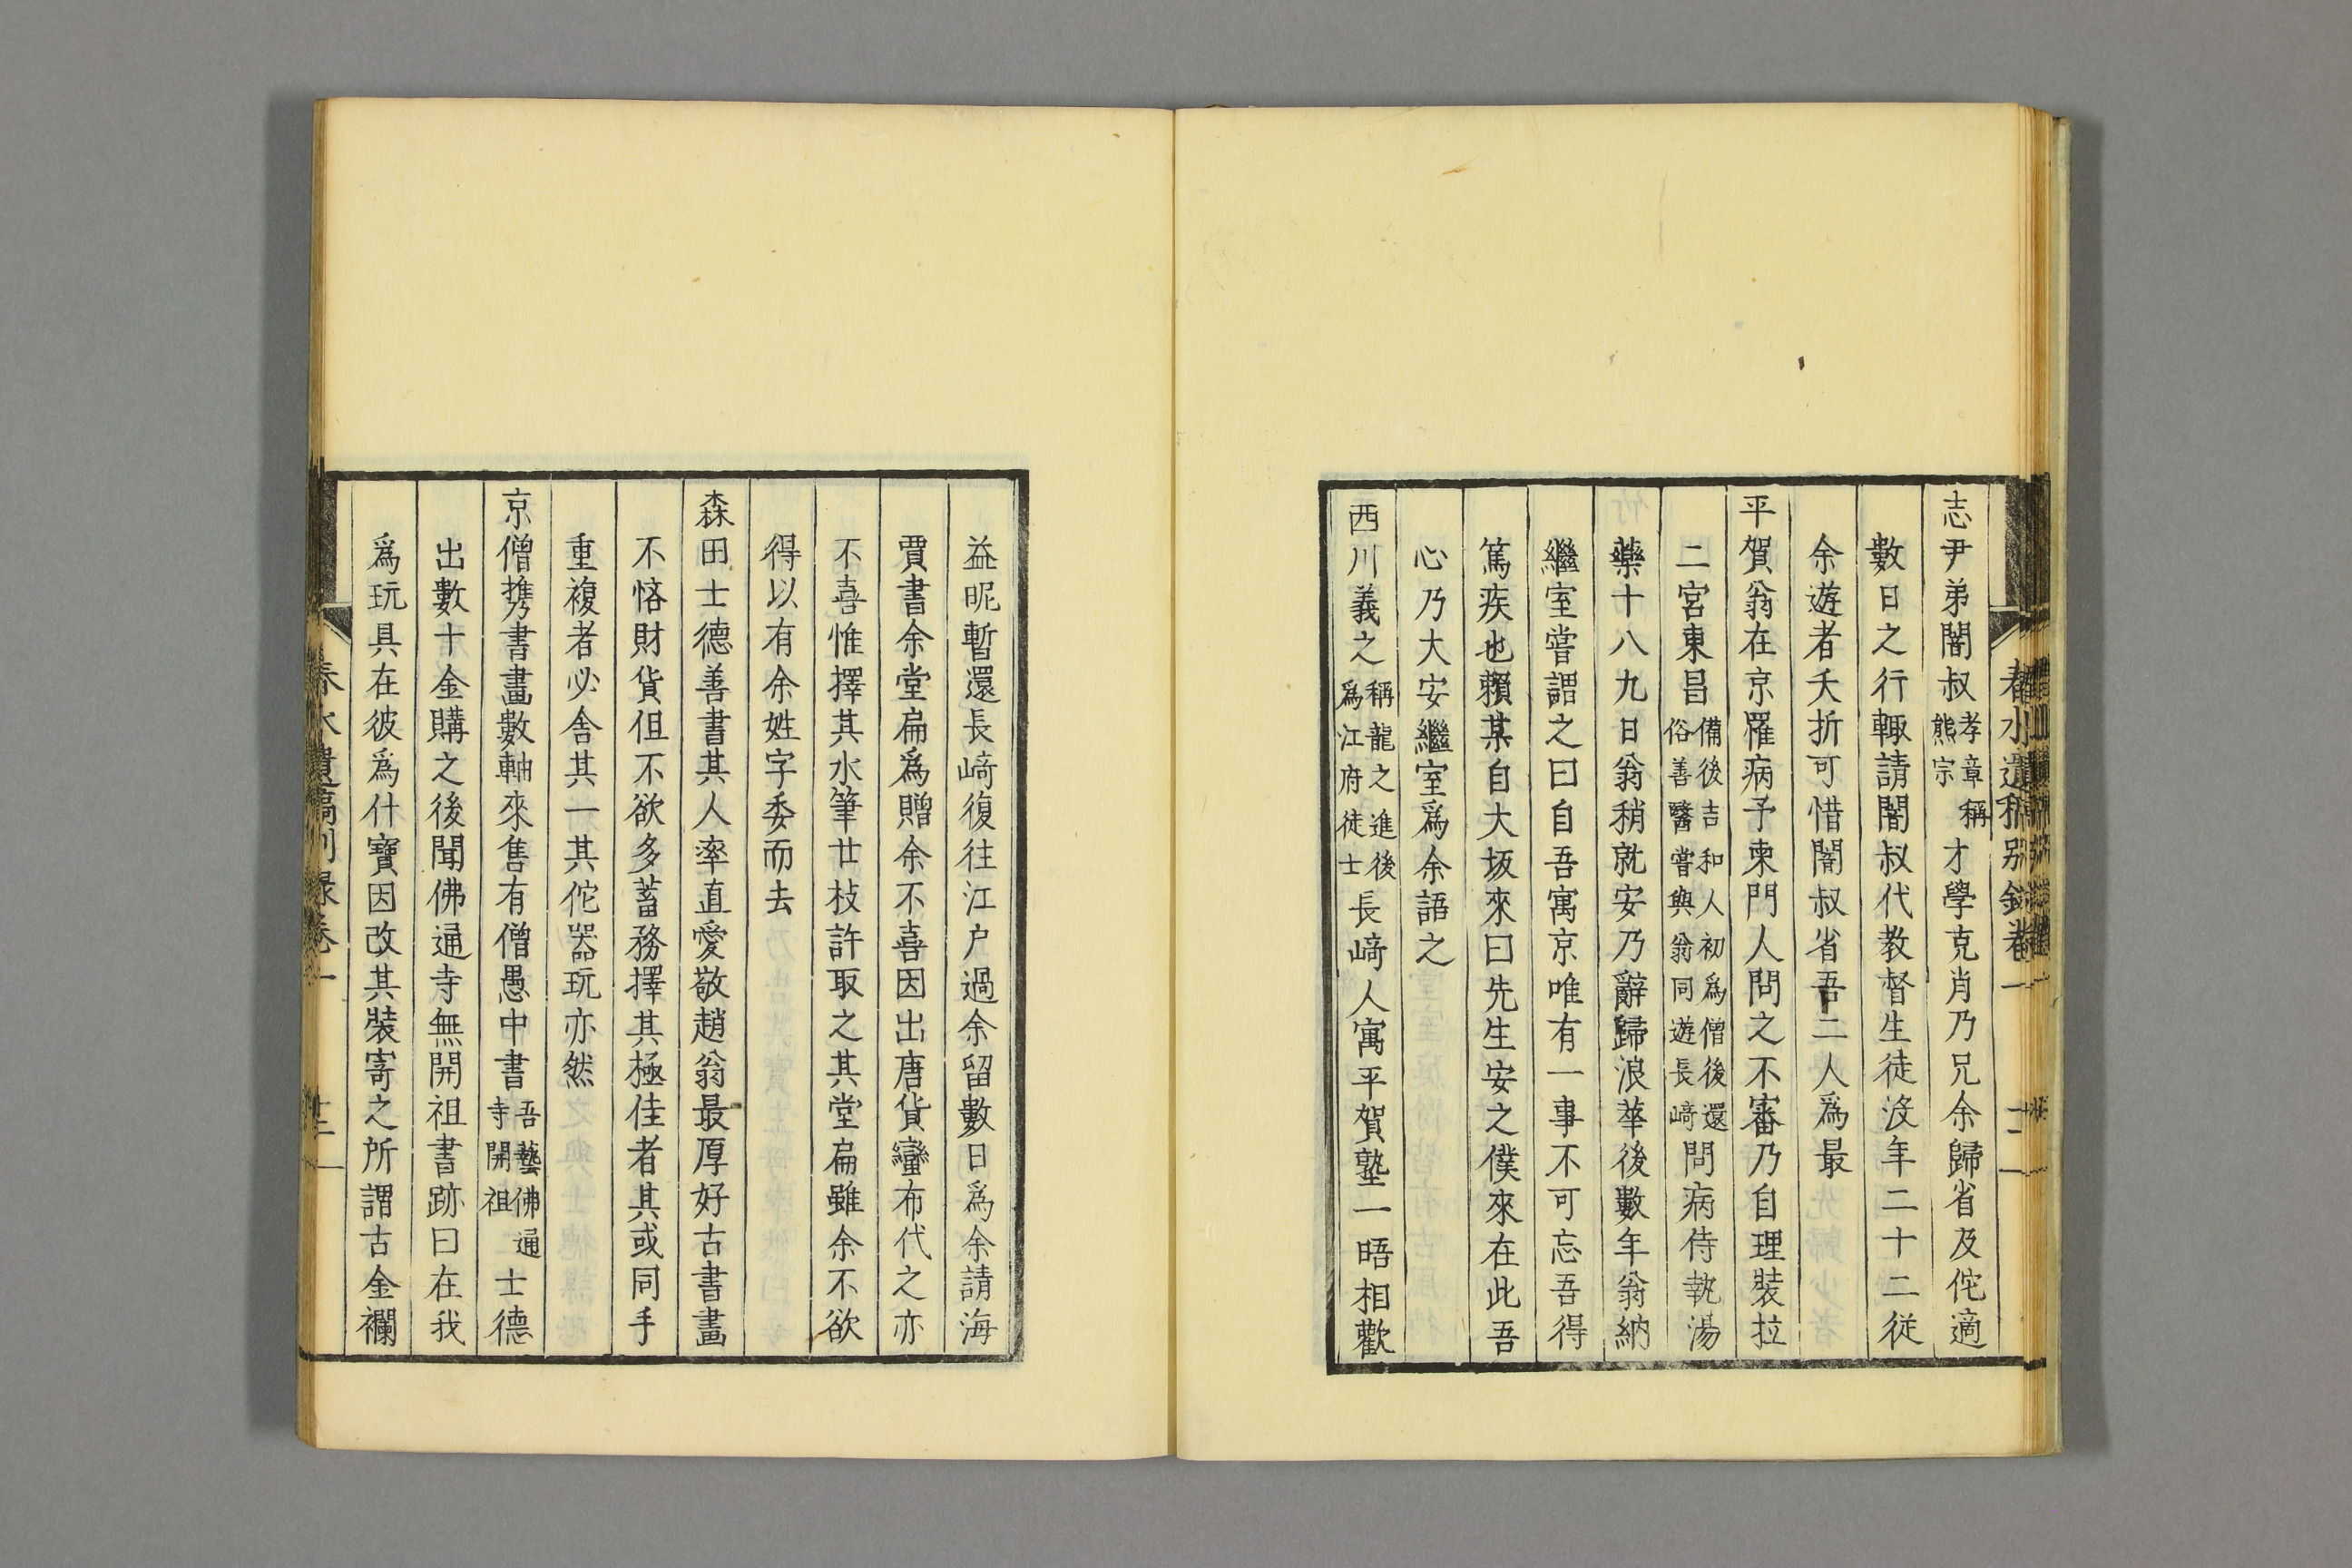 志尹弟闇叔孝章稱熊宗才學克肖乃兄余歸省及佗適
數日之行輙請闇叔代教督生徒沒年二十二従
余遊者夭折可惜闇叔省吾二人爲最
平賀翁在京罹病予柬門人問之不審乃自理裝拉
二宮東昌備後吉和人初爲僧後還俗善醫嘗與翁同遊長﨑問病侍執湯
藥十八九日翁稍就安乃辭歸浪華後數年翁納
繼室嘗謂之曰自吾寓京唯有一事不可忘吾得
篤疾也賴某自大坂來曰先生安之僕來在此吾
心乃大安繼室爲余語之
西川義之稱龍之進後爲江府徒士長﨑人寓平賀塾一晤相歡
春水遺稿別録巻一
十二
益昵暫還長﨑復往江户過余留數日爲余請海
賈書余堂扁爲贈余不喜因出唐貨蠻布代之亦
不喜惟擇其水筆廿枝許取之其堂扁雖余不欲
得以有余姓字委而去
森田士德善書其人率直愛敬趙翁最厚好古書畫
不悋財貨但不欲多蓄務擇其極佳者其或同手
重複者必舎其一其佗器玩亦然
京僧携書畫數軸來售有僧愚中書吾藝佛通寺開祖士德
出數十金購之後聞佛通寺無開祖書跡曰在我
爲玩具在彼爲什寶因改其裝寄之所謂古金襴
春水遺稿別録巻一